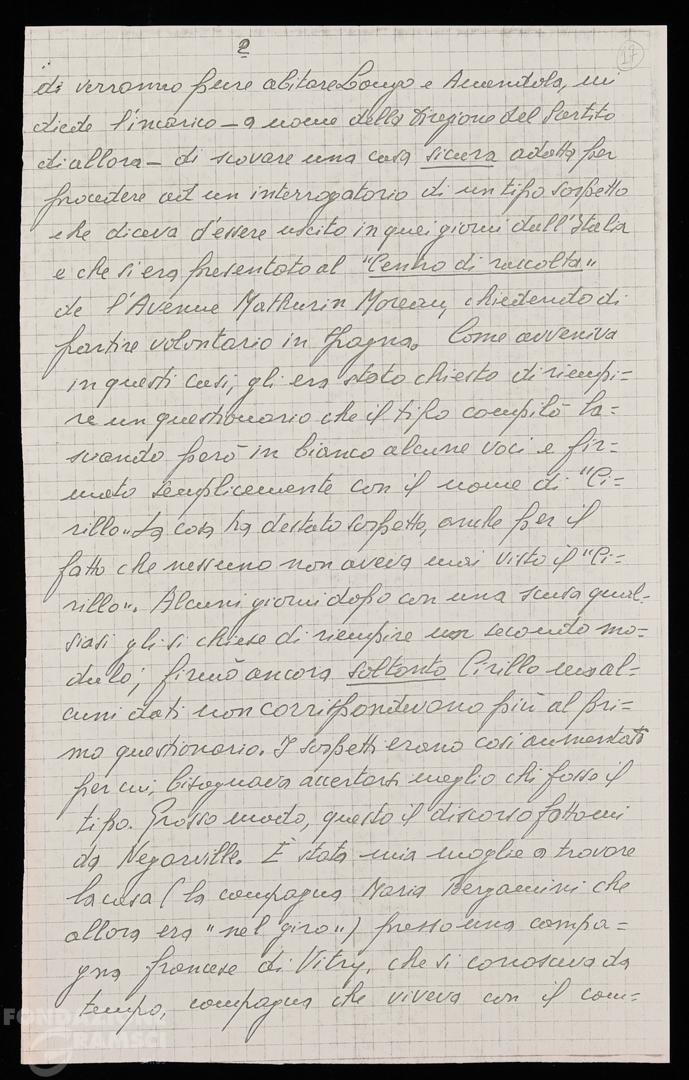 2
17
di verranno pure abitare Longo e Amendola, mi
diede l'incarico – a nome della Direzione del Partito
di allora – di scovare una casa sicura adatta per
procedere ad un interrogatorio di un tipo sospetto
che diceva d'essere uscito in quei giorni dall'Italia
e che si era presentato al "Centro di raccolta"
de l'Avenue Mathurin Moreau, chiedendo di
partire volontario in Spagna. Come avveniva
in questi casi, gli era stato chiesto di riempi=
re un questionario che il tipo compilò la=
sciando però in bianco alcune voci e fir=
mato semplicemente con il nome di "Ci=
rillo". La cosa ha destato sospetto, anche per il
fatto che nessuno non aveva mai visto il "Ci=
rillo". Alcuni giorni dopo con una scusa qual=
siasi gli si chiese di riempire un secondo mo=
dulo; firmò ancora soltanto Cirillo ma al=
cuni dati non corrispondevano più al pri=
mo questionario. I sospetti erano così aumentati
per cui, bisognava accertarsi meglio chi fosse il
tipo. Grosso modo, questo il discorso fattomi
da Negarville. È stata mia moglie a trovare
la casa (la compagna Maria Bergamini che
allora era "nel giro") presso una compa=
gna francese di Vitry, che si conosceva da
tempo, compagna che viveva con il com=
FONDAZIONE
GRAMSCI